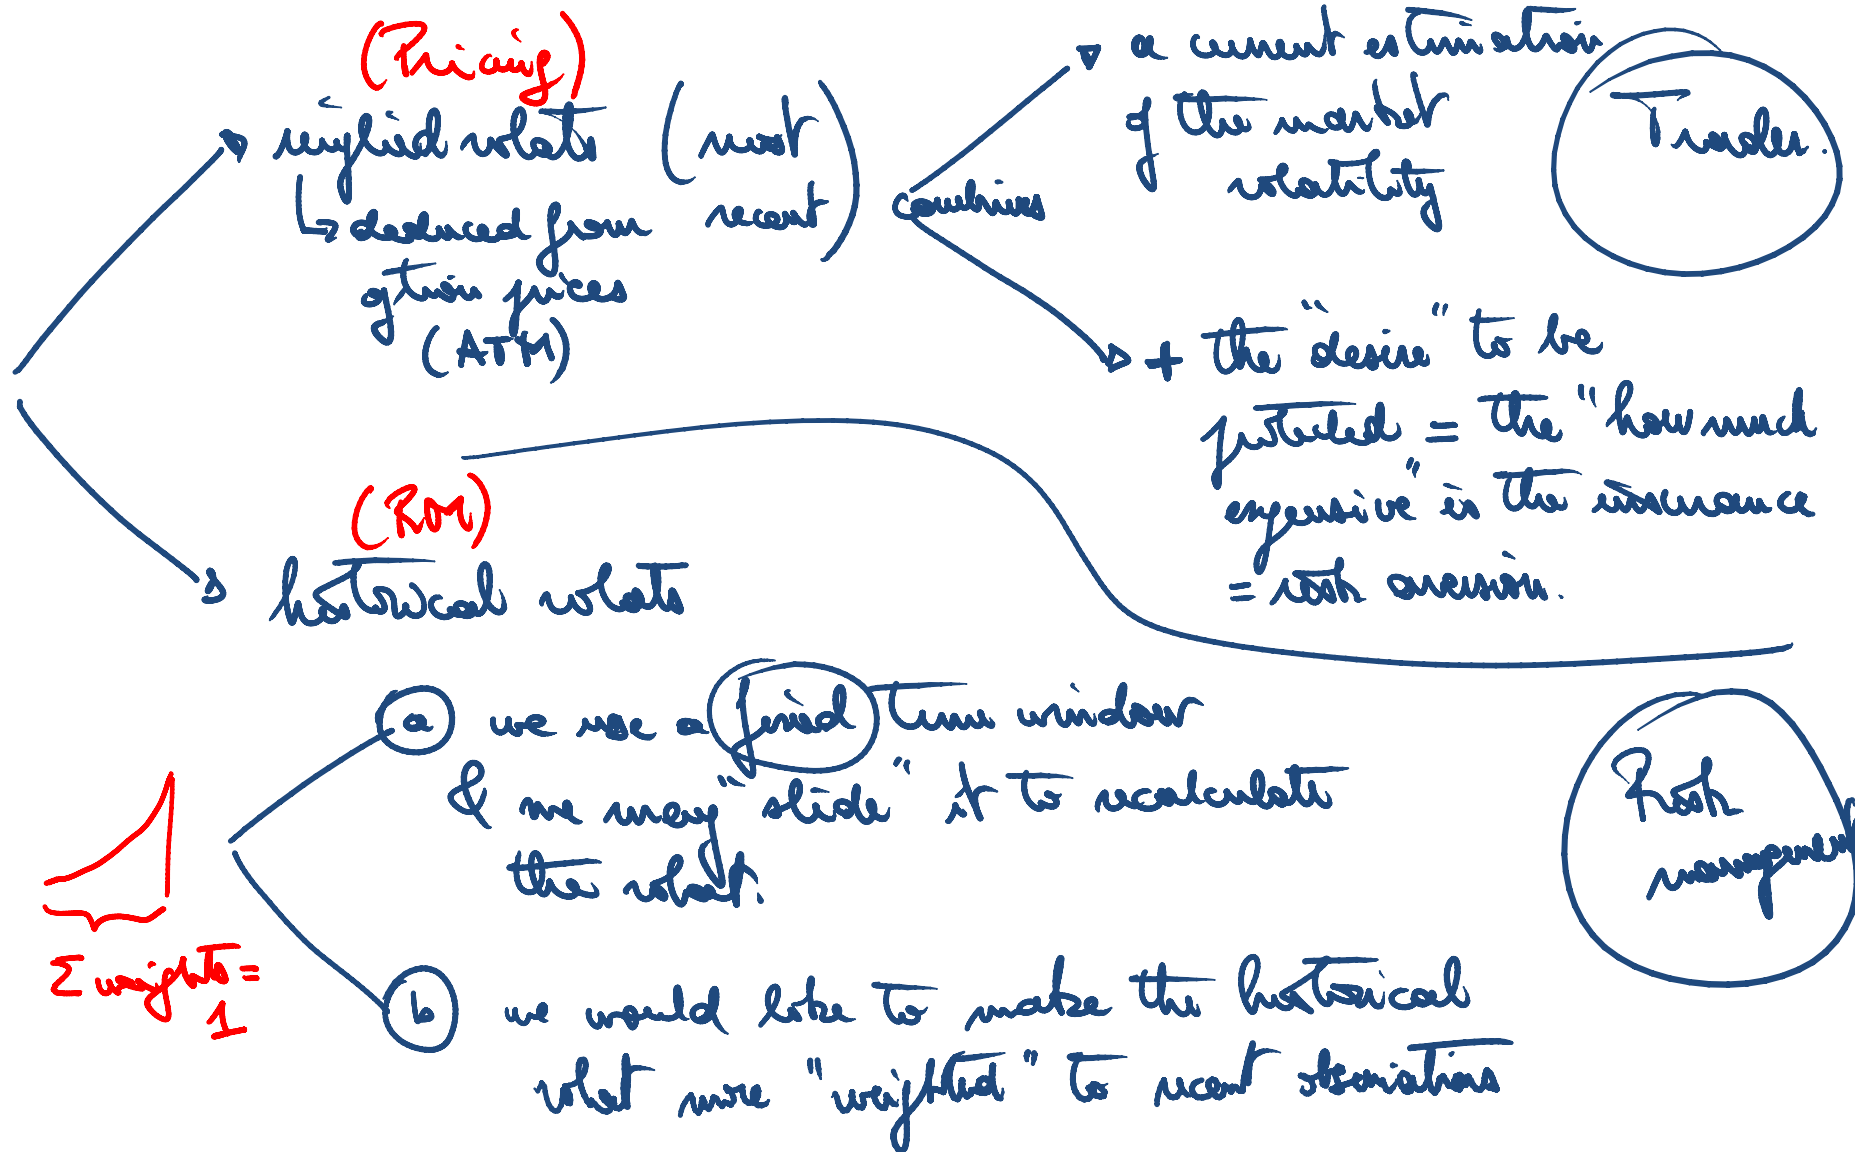 (Pricing)
implied volats (most recent)
↳ deduced from
option prices
(ATM)
combines
a current estimation
of the market
volatility
Trader.
+ the "desire" to be
protected = the "how much
expensive" is the insurance
= risk aversion.
(RM)
historical volats
a we use a fixed time window
& we may "slide" it to recalculate
the volat.
Risk
management
Σ weights =
1
b we would like to make the historical
volat more "weighted" to recent observations